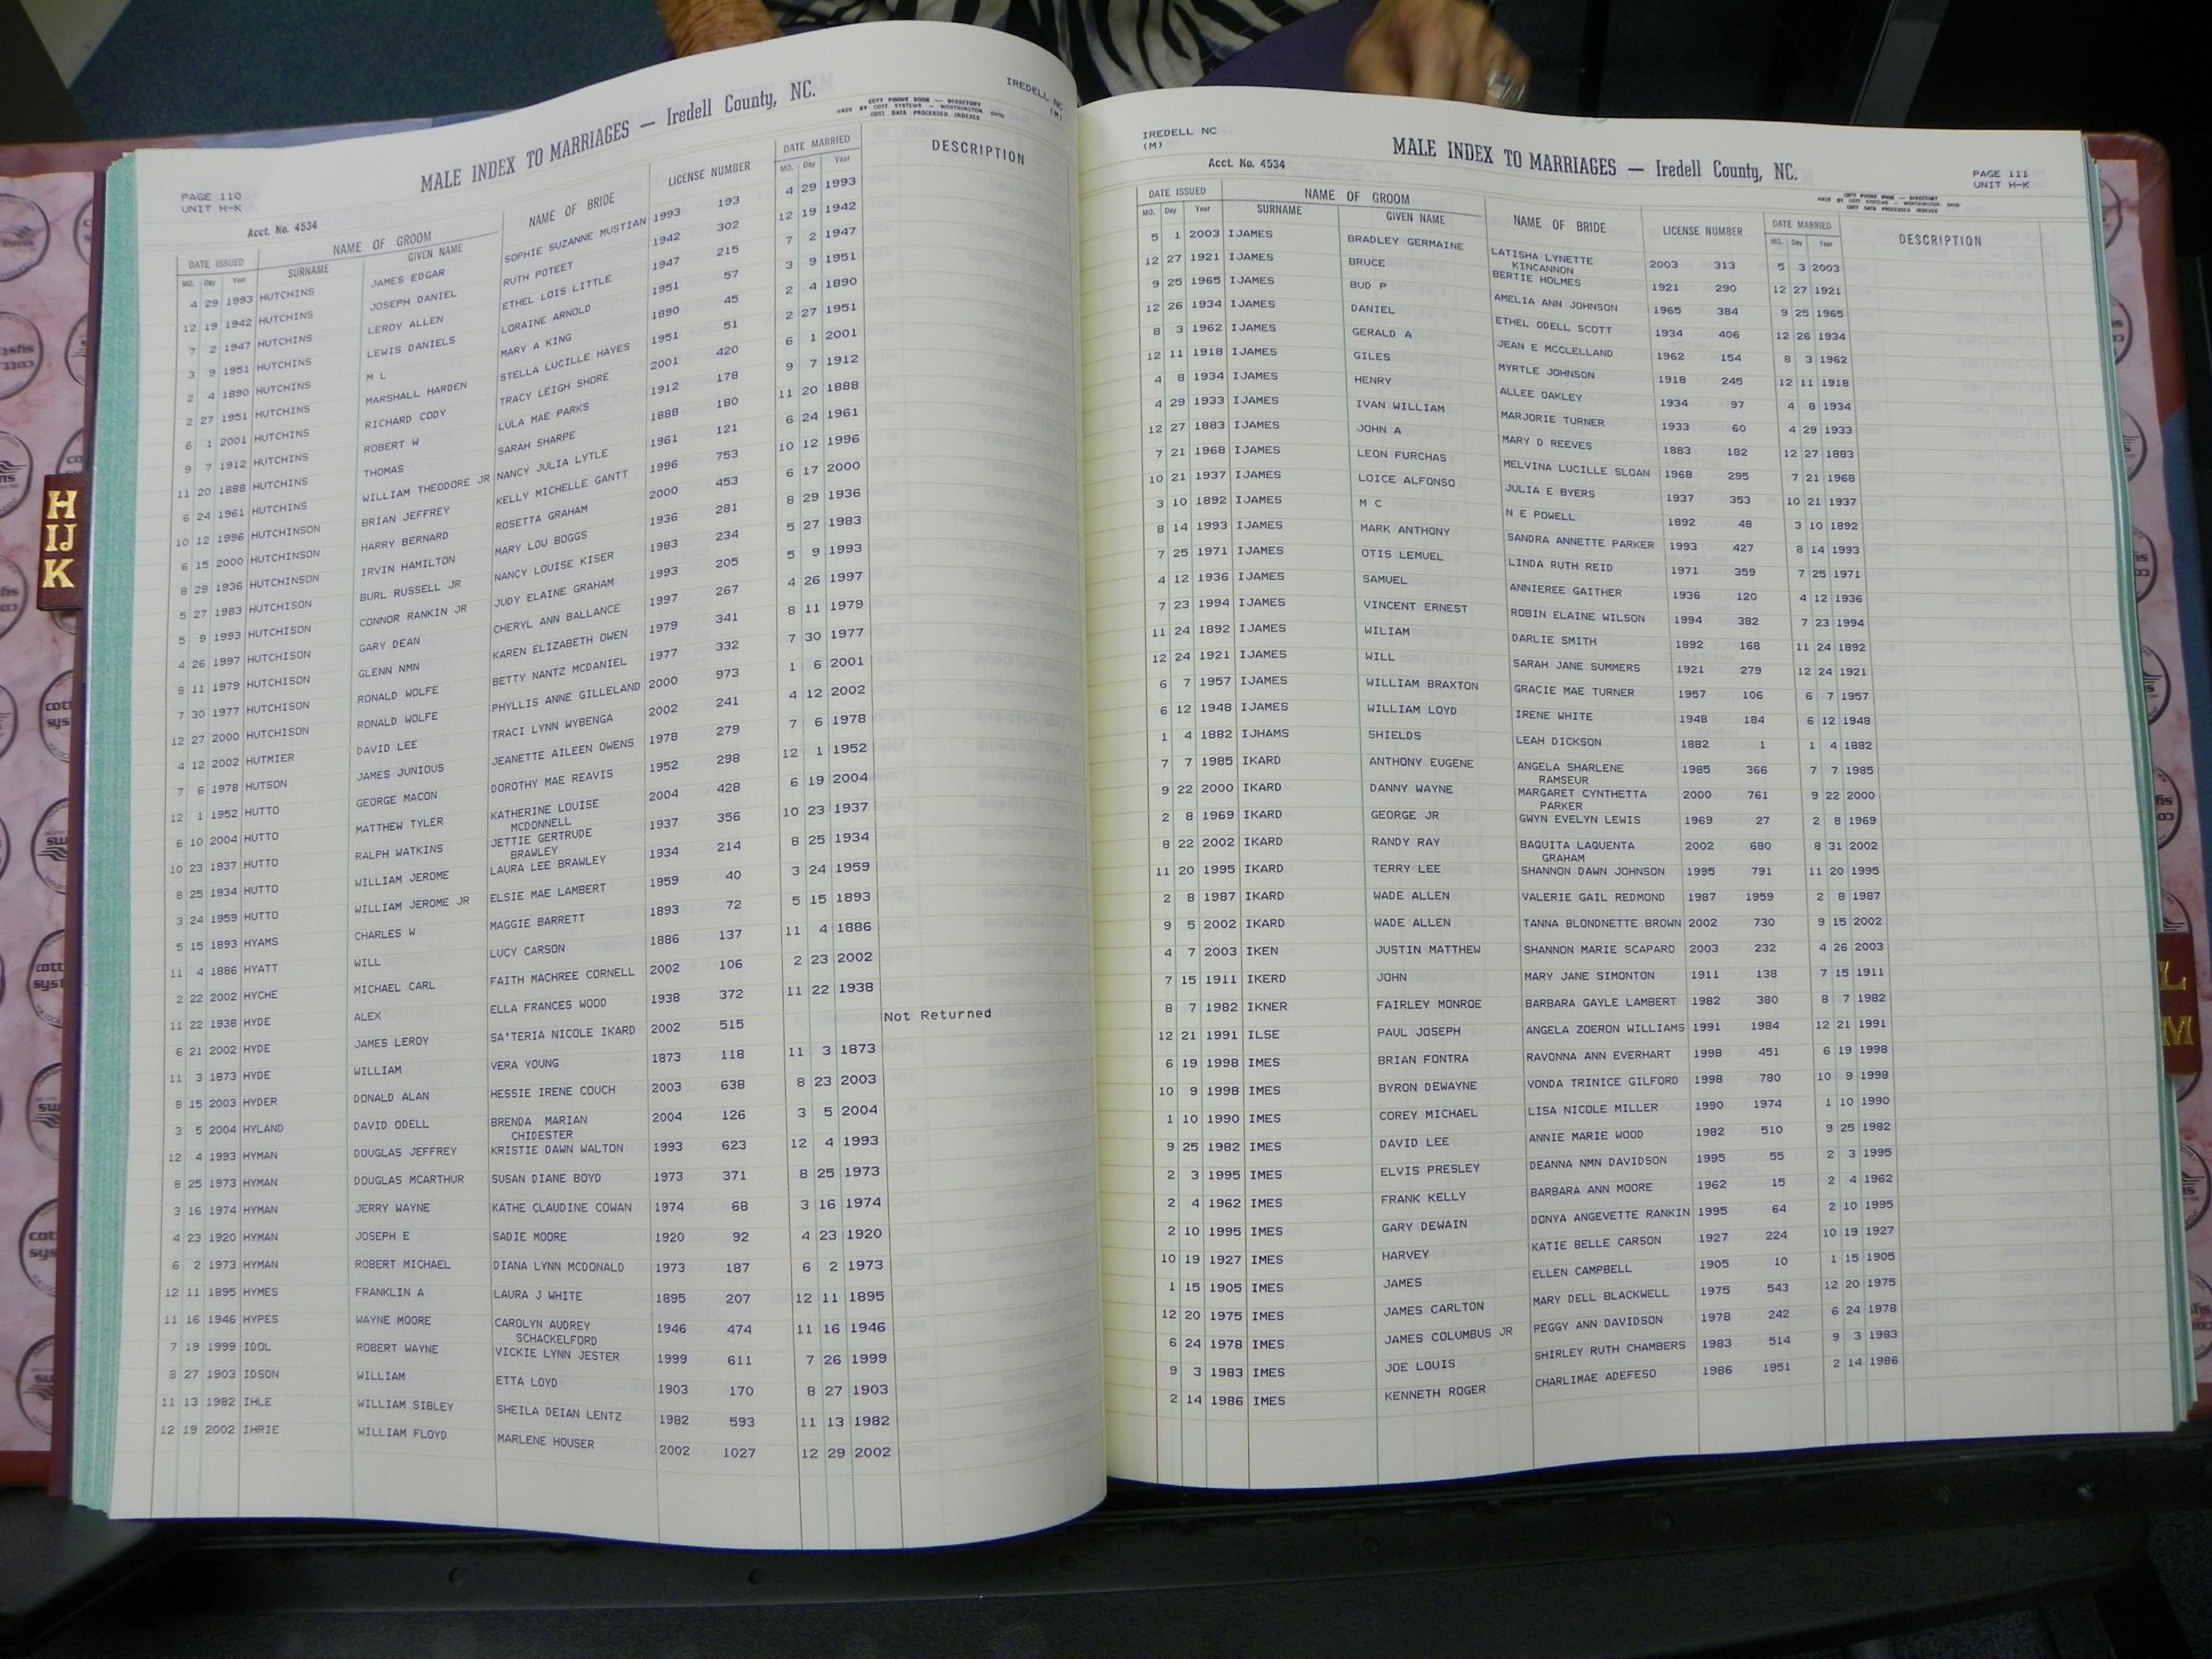 PAGE 110
UNIT H-K
MALE INDEX TO MARRIAGES — Iredell County, NC.
COTT PHONE BOOK — DIRECTORY
MADE BY COTT SYSTEMS — WORTHINGTON OHIO
COTT DATA PROCESSED INDEXES
IREDELL NC
(M)
Acct. No. 4534
DATE ISSUED NAME OF GROOM NAME OF BRIDE LICENSE NUMBER DATE MARRIED DESCRIPTION
MO. Day Year SURNAME GIVEN NAME MO. Day Year
4 29 1993 HUTCHINS JAMES EDGAR SOPHIE SUZANNE MUSTIAN 1993 193 4 29 1993
12 19 1942 HUTCHINS JOSEPH DANIEL RUTH POTEET 1942 302 12 19 1942
7 2 1947 HUTCHINS LEROY ALLEN ETHEL LOIS LITTLE 1947 215 7 2 1947
3 9 1951 HUTCHINS LEWIS DANIELS LORAINE ARNOLD 1951 57 3 9 1951
2 4 1890 HUTCHINS M L MARY A KING 1890 45 2 4 1890
2 27 1951 HUTCHINS MARSHALL HARDEN STELLA LUCILLE HAYES 1951 51 2 27 1951
6 1 2001 HUTCHINS RICHARD CODY TRACY LEIGH SHORE 2001 420 6 1 2001
9 7 1912 HUTCHINS ROBERT W LULA MAE PARKS 1912 178 9 7 1912
11 20 1888 HUTCHINS THOMAS SARAH SHARPE 1888 180 11 20 1888
6 24 1961 HUTCHINS WILLIAM THEODORE JR NANCY JULIA LYTLE 1961 121 6 24 1961
10 12 1996 HUTCHINSON BRIAN JEFFREY KELLY MICHELLE GANTT 1996 753 10 12 1996
6 15 2000 HUTCHINSON HARRY BERNARD ROSETTA GRAHAM 2000 453 6 17 2000
8 29 1936 HUTCHINSON IRVIN HAMILTON MARY LOU BOGGS 1936 281 8 29 1936
5 27 1983 HUTCHISON BURL RUSSELL JR NANCY LOUISE KISER 1983 234 5 27 1983
5 9 1993 HUTCHISON CONNOR RANKIN JR JUDY ELAINE GRAHAM 1993 205 5 9 1993
4 26 1997 HUTCHISON GARY DEAN CHERYL ANN BALLANCE 1997 267 4 26 1997
8 11 1979 HUTCHISON GLENN NMN KAREN ELIZABETH OWEN 1979 341 8 11 1979
7 30 1977 HUTCHISON RONALD WOLFE BETTY NANTZ MCDANIEL 1977 332 7 30 1977
12 27 2000 HUTCHISON RONALD WOLFE PHYLLIS ANNE GILLELAND 2000 973 1 6 2001
4 12 2002 HUTMIER DAVID LEE TRACI LYNN WYBENGA 2002 241 4 12 2002
7 6 1978 HUTSON JAMES JUNIOUS JEANETTE AILEEN OWENS 1978 279 7 6 1978
12 1 1952 HUTTO GEORGE MACON DOROTHY MAE REAVIS 1952 298 12 1 1952
6 10 2004 HUTTO MATTHEW TYLER KATHERINE LOUISE 2004 428 6 19 2004
MCDONNELL
10 23 1937 HUTTO RALPH WATKINS JETTIE GERTRUDE 1937 356 10 23 1937
BRAWLEY
8 25 1934 HUTTO WILLIAM JEROME LAURA LEE BRAWLEY 1934 214 8 25 1934
3 24 1959 HUTTO WILLIAM JEROME JR ELSIE MAE LAMBERT 1959 40 3 24 1959
5 15 1893 HYAMS CHARLES W MAGGIE BARRETT 1893 72 5 15 1893
11 4 1886 HYATT WILL LUCY CARSON 1886 137 11 4 1886
2 22 2002 HYCHE MICHAEL CARL FAITH MACHREE CORNELL 2002 106 2 23 2002
11 22 1938 HYDE ALEX ELLA FRANCES WOOD 1938 372 11 22 1938
6 21 2002 HYDE JAMES LEROY SA'TERIA NICOLE IKARD 2002 515 Not Returned
11 3 1873 HYDE WILLIAM VERA YOUNG 1873 118 11 3 1873
8 15 2003 HYDER DONALD ALAN HESSIE IRENE COUCH 2003 638 8 23 2003
3 5 2004 HYLAND DAVID ODELL BRENDA MARIAN 2004 126 3 5 2004
CHIDESTER
12 4 1993 HYMAN DOUGLAS JEFFREY KRISTIE DAWN WALTON 1993 623 12 4 1993
8 25 1973 HYMAN DOUGLAS MCARTHUR SUSAN DIANE BOYD 1973 371 8 25 1973
3 16 1974 HYMAN JERRY WAYNE KATHE CLAUDINE COWAN 1974 68 3 16 1974
4 23 1920 HYMAN JOSEPH E SADIE MOORE 1920 92 4 23 1920
6 2 1973 HYMAN ROBERT MICHAEL DIANA LYNN MCDONALD 1973 187 6 2 1973
12 11 1895 HYMES FRANKLIN A LAURA J WHITE 1895 207 12 11 1895
11 16 1946 HYPES WAYNE MOORE CAROLYN AUDREY 1946 474 11 16 1946
SCHACKELFORD
7 19 1999 IDOL ROBERT WAYNE VICKIE LYNN JESTER 1999 611 7 26 1999
8 27 1903 IDSON WILLIAM ETTA LOYD 1903 170 8 27 1903
11 13 1982 IHLE WILLIAM SIBLEY SHEILA DEIAN LENTZ 1982 593 11 13 1982
12 19 2002 IHRIE WILLIAM FLOYD MARLENE HOUSER 2002 1027 12 29 2002
IREDELL NC
(M)
Acct. No. 4534
MALE INDEX TO MARRIAGES — Iredell County, NC.
PAGE 111
UNIT H-K
COTT PHONE BOOK — DIRECTORY
MADE BY COTT SYSTEMS — WORTHINGTON OHIO
COTT DATA PROCESSED INDEXES
DATE ISSUED NAME OF GROOM NAME OF BRIDE LICENSE NUMBER DATE MARRIED DESCRIPTION
MO. Day Year SURNAME GIVEN NAME MO. Day Year
5 1 2003 IJAMES BRADLEY GERMAINE LATISHA LYNETTE 2003 313 5 3 2003
KINCANNON
12 27 1921 IJAMES BRUCE BERTIE HOLMES 1921 290 12 27 1921
9 25 1965 IJAMES BUD P AMELIA ANN JOHNSON 1965 384 9 25 1965
12 26 1934 IJAMES DANIEL ETHEL ODELL SCOTT 1934 406 12 26 1934
8 3 1962 IJAMES GERALD A JEAN E MCCLELLAND 1962 154 8 3 1962
12 11 1918 IJAMES GILES MYRTLE JOHNSON 1918 245 12 11 1918
4 8 1934 IJAMES HENRY ALLEE OAKLEY 1934 97 4 8 1934
4 29 1933 IJAMES IVAN WILLIAM MARJORIE TURNER 1933 60 4 29 1933
12 27 1883 IJAMES JOHN A MARY D REEVES 1883 182 12 27 1883
7 21 1968 IJAMES LEON FURCHAS MELVINA LUCILLE SLOAN 1968 295 7 21 1968
10 21 1937 IJAMES LOICE ALFONSO JULIA E BYERS 1937 353 10 21 1937
3 10 1892 IJAMES M C N E POWELL 1892 48 3 10 1892
8 14 1993 IJAMES MARK ANTHONY SANDRA ANNETTE PARKER 1993 427 8 14 1993
7 25 1971 IJAMES OTIS LEMUEL LINDA RUTH REID 1971 359 7 25 1971
4 12 1936 IJAMES SAMUEL ANNIEREE GAITHER 1936 120 4 12 1936
7 23 1994 IJAMES VINCENT ERNEST ROBIN ELAINE WILSON 1994 382 7 23 1994
11 24 1892 IJAMES WILIAM DARLIE SMITH 1892 168 11 24 1892
12 24 1921 IJAMES WILL SARAH JANE SUMMERS 1921 279 12 24 1921
6 7 1957 IJAMES WILLIAM BRAXTON GRACIE MAE TURNER 1957 106 6 7 1957
6 12 1948 IJAMES WILLIAM LOYD IRENE WHITE 1948 184 6 12 1948
1 4 1882 IJHAMS SHIELDS LEAH DICKSON 1882 1 1 4 1882
7 7 1985 IKARD ANTHONY EUGENE ANGELA SHARLENE 1985 366 7 7 1985
RAMSEUR
9 22 2000 IKARD DANNY WAYNE MARGARET CYNTHETTA 2000 761 9 22 2000
PARKER
2 8 1969 IKARD GEORGE JR GWYN EVELYN LEWIS 1969 27 2 8 1969
8 22 2002 IKARD RANDY RAY BAQUITA LAQUENTA 2002 680 8 31 2002
GRAHAM
11 20 1995 IKARD TERRY LEE SHANNON DAWN JOHNSON 1995 791 11 20 1995
2 8 1987 IKARD WADE ALLEN VALERIE GAIL REDMOND 1987 1959 2 8 1987
9 5 2002 IKARD WADE ALLEN TANNA BLONDNETTE BROWN 2002 730 9 15 2002
4 7 2003 IKEN JUSTIN MATTHEW SHANNON MARIE SCAPARO 2003 232 4 26 2003
7 15 1911 IKERD JOHN MARY JANE SIMONTON 1911 138 7 15 1911
8 7 1982 IKNER FAIRLEY MONROE BARBARA GAYLE LAMBERT 1982 380 8 7 1982
12 21 1991 ILSE PAUL JOSEPH ANGELA ZOERON WILLIAMS 1991 1984 12 21 1991
6 19 1998 IMES BRIAN FONTRA RAVONNA ANN EVERHART 1998 451 6 19 1998
10 9 1998 IMES BYRON DEWAYNE VONDA TRINICE GILFORD 1998 780 10 9 1998
1 10 1990 IMES COREY MICHAEL LISA NICOLE MILLER 1990 1974 1 10 1990
9 25 1982 IMES DAVID LEE ANNIE MARIE WOOD 1982 510 9 25 1982
2 3 1995 IMES ELVIS PRESLEY DEANNA NMN DAVIDSON 1995 55 2 3 1995
2 4 1962 IMES FRANK KELLY BARBARA ANN MOORE 1962 15 2 4 1962
2 10 1995 IMES GARY DEWAIN DONYA ANGEVETTE RANKIN 1995 64 2 10 1995
10 19 1927 IMES HARVEY KATIE BELLE CARSON 1927 224 10 19 1927
1 15 1905 IMES JAMES ELLEN CAMPBELL 1905 10 1 15 1905
12 20 1975 IMES JAMES CARLTON MARY DELL BLACKWELL 1975 543 12 20 1975
6 24 1978 IMES JAMES COLUMBUS JR PEGGY ANN DAVIDSON 1978 242 6 24 1978
9 3 1983 IMES JOE LOUIS SHIRLEY RUTH CHAMBERS 1983 514 9 3 1983
2 14 1986 IMES KENNETH ROGER CHARLIMAE ADEFESO 1986 1951 2 14 1986
H
IJ
K
L
M